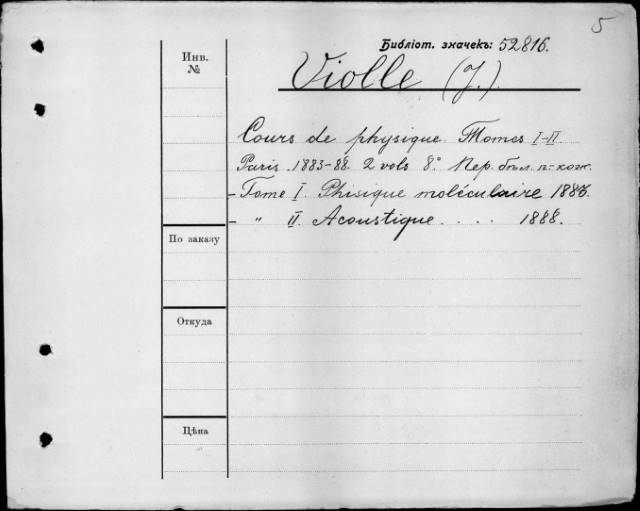 5
Библіот. значекъ: 52816.
Инв.
№
Violle (J.).
Cours de physique. Tomes I-II.
Paris. 1883-88. 2 vols 8°. Пер. бѣл. п.-кож.
- Tome I. Phisique moléculaire 1883.
- " II. Acoustique . . . . 1888.
По заказу
Откуда
Цѣна